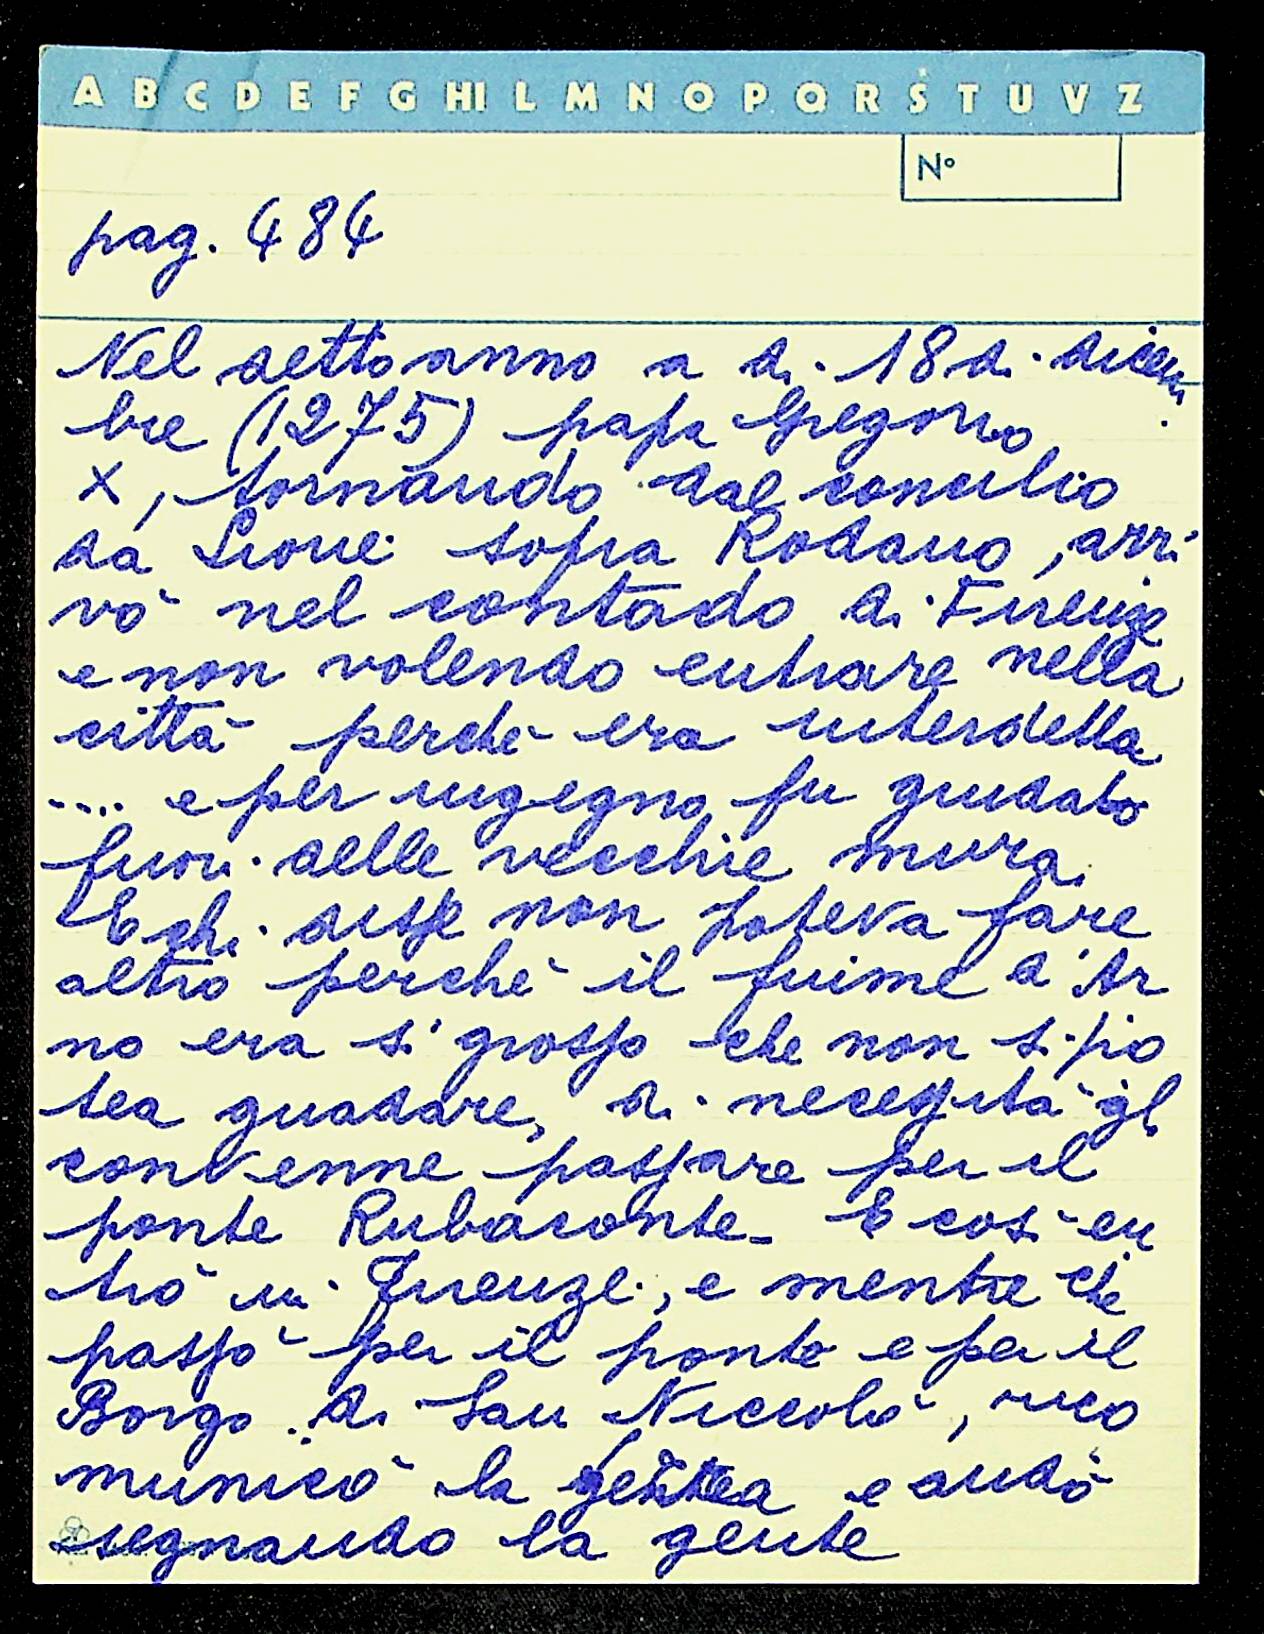 A B C D E F G HI L M N O P Q R S T U V Z
N°
pag. 484
Nel detto anno a di 18 di dicem
bre (1275) papa Gregorio
X, tornando dal concilio
da Lione sopra Rodano, arri
vò nel contado di Firenze
e non volendo entrare nella
città perchè era interdetta
.... e per ingegno fu guidato
fuori delle vecchie mura.
E chi disse non poteva fare
altro perchè il fiume d'Ar
no era sì grosso che non si po
tea guadare, di necessità gli
convenne passare per il
ponte Rubaconte - E così en
trò in Firenze, e mentre che
passò per il ponte e per il
Borgo di San Niccolò, rico
municò la e andò
segnando la gente